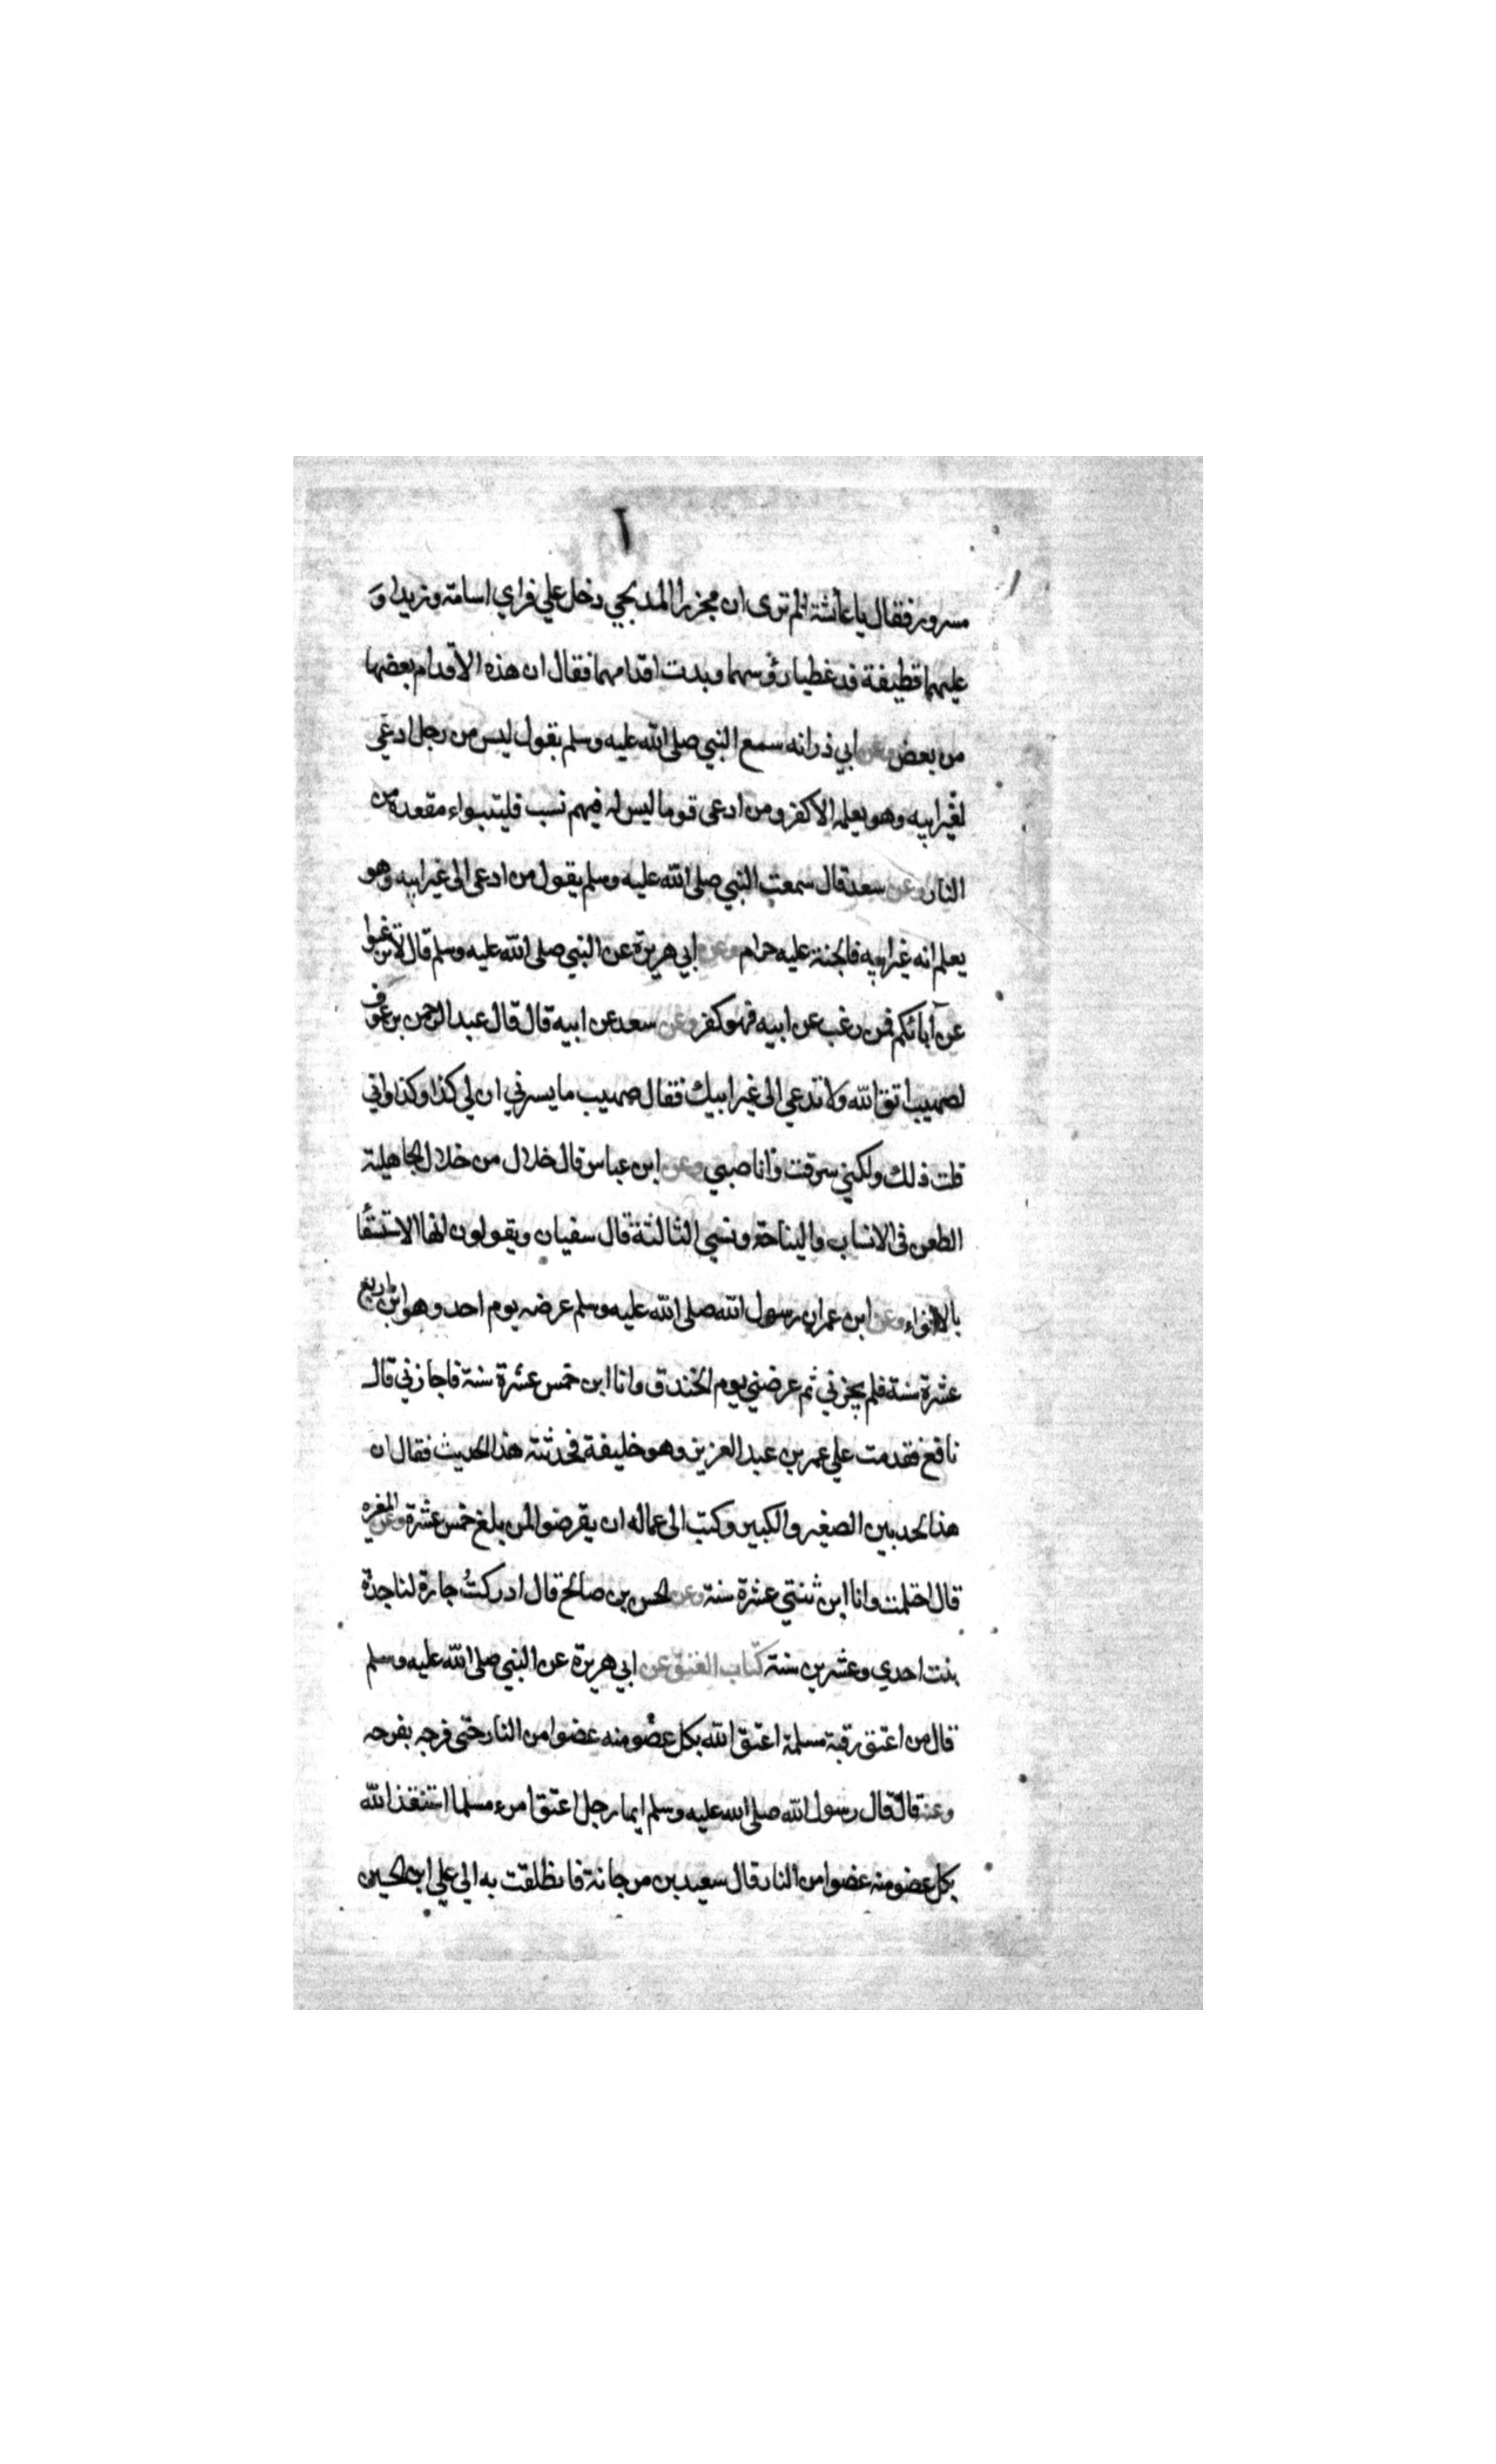 مسرور فقال يا عائشة الم ترى ان مجززا المدلجي دخل علي فراي اسامة وزيدا و
عليهما قطيفة قد غطيا رؤسهما وبدت اقدامهما فقال ان هذه الاقدام بعضها
من بعض وعن ابي ذر انه سمع النبي صلى الله عليه وسلم يقول ليس من رجل ادعى
لغير ابيه وهو يعلمه الا كفر ومن ادعى قوما ليس له فيهم نسب فليتبواء مقعده من
النار وعن سعد قال سمعت النبي صلى الله عليه وسلم يقول من ادعى الى غير ابيه وهو
يعلم انه غير ابيه فالجنة عليه حرام وعن ابي هريرة عن النبي صلى الله عليه وسلم قال لا ترغبوا
عن آبائكم فمن رغب عن ابيه فهو كفر وعن سعد عن ابيه قال قال عبد الرحمن بن عوف
لصهيب اتق الله ولا تدعي الى غير ابيك فقال صهيب ما يسرني ان لي كذا وكذا واني
قلت ذلك ولكني سرقت وانا صبي وعن ابن عباس قال خلال من خلال الجاهلية
الطعن في الانساب والنياحة ونسي الثالثة قال سفيان ويقولون انها الاستسقا
بالانواء وعن ابن عمر ان رسول الله صلى الله عليه وسلم عرضه يوم احد وهو ابن اربع
عشرة سنة فلم يجزني ثم عرضني يوم الخندق وانا ابن خمس عشرة سنة فاجازني قال
نافع فقدمت على عمر بن عبد العزيز وهو خليفة فحدثته هذا الحديث فقال ان
هذا لحد بين الصغير والكبير وكتب الى عماله ان يفرضوا لمن بلغ خمس عشرة وعن المغيره
قال احتلمت وانا ابن ثنتي عشرة سنة وعن الحسن بن صالح قال ادركت جارة لنا جدة
بنت احدي وعشرين سنة كتاب العتق عن ابي هريرة عن النبي صلى الله عليه وسلم
قال من اعتق رقبة مسلمة اعتق الله بكل عضو منه عضوا من النار حتى فرجه بفرجه
وعنه قال قال رسول الله صلى الله عليه وسلم ايما رجل اعتق امرء مسلما استنقذ الله
بكل عضو منه عضوا من النار قال سعيد بن مرجانة فانطلقت به الي علي ابن الحسين